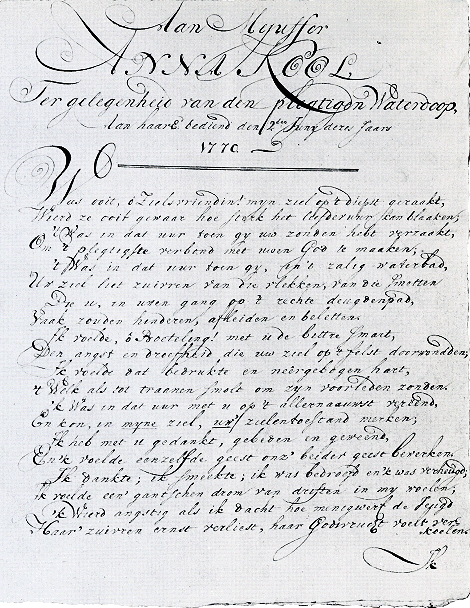 Aan Mejuffer
ANNA KOOL
Ter gelegenheid van den plegtigen Waterdoop,
Aan haarE. bediend den 2den Juny dezes Jaars
1770
Was ooit, ô Zielsvriendin! myn ziel op 't diepst geraakt,
Wierd ze ooit gewaar hoe sterk het liefdevuur kan blaaken;
't Was in dat uur toen gy uw zonden hebt verzaakt,
Om 't plegtigste verbond met uwen God te maaken;
't Was in dat uur toen gy, in 't zalig waterbad,
Uw ziel liet zuivren van die vlekken, van die smetten
Die u, in uwen gang op 't rechte deugdenpad,
Vaak zouden hinderen, afleiden en beletten.
Ik voelde, ô Boeteling! met u de bittre smart,
Den angst en droefheid die uw ziel op 't felst doorwondden;
Ik voelde dat bedrukte en neêrgebogen hart,
't Welk als tot traanen smolt om zyn voorleden zonden.
'k Was in dat uur met u op 't allernaauwst verëend,
En kon, in myne ziel, uw zielentoestand merken;
Ik heb met u gedankt, gebeden en geweend,
En 'k voelde eenzelfde geest onz' beider geest bewerken.
Ik dankte; ik smeekte; ik was bedroefd en 'k was verheugd;
ik voelde een gantschen drom van driften in my woelen;
'k Wierd angstig als ik dacht hoe menigwerf de Jeugd
Haar' zuivren ernst verliest, haar Godsvrucht voelt ver-
koelen.
Ik